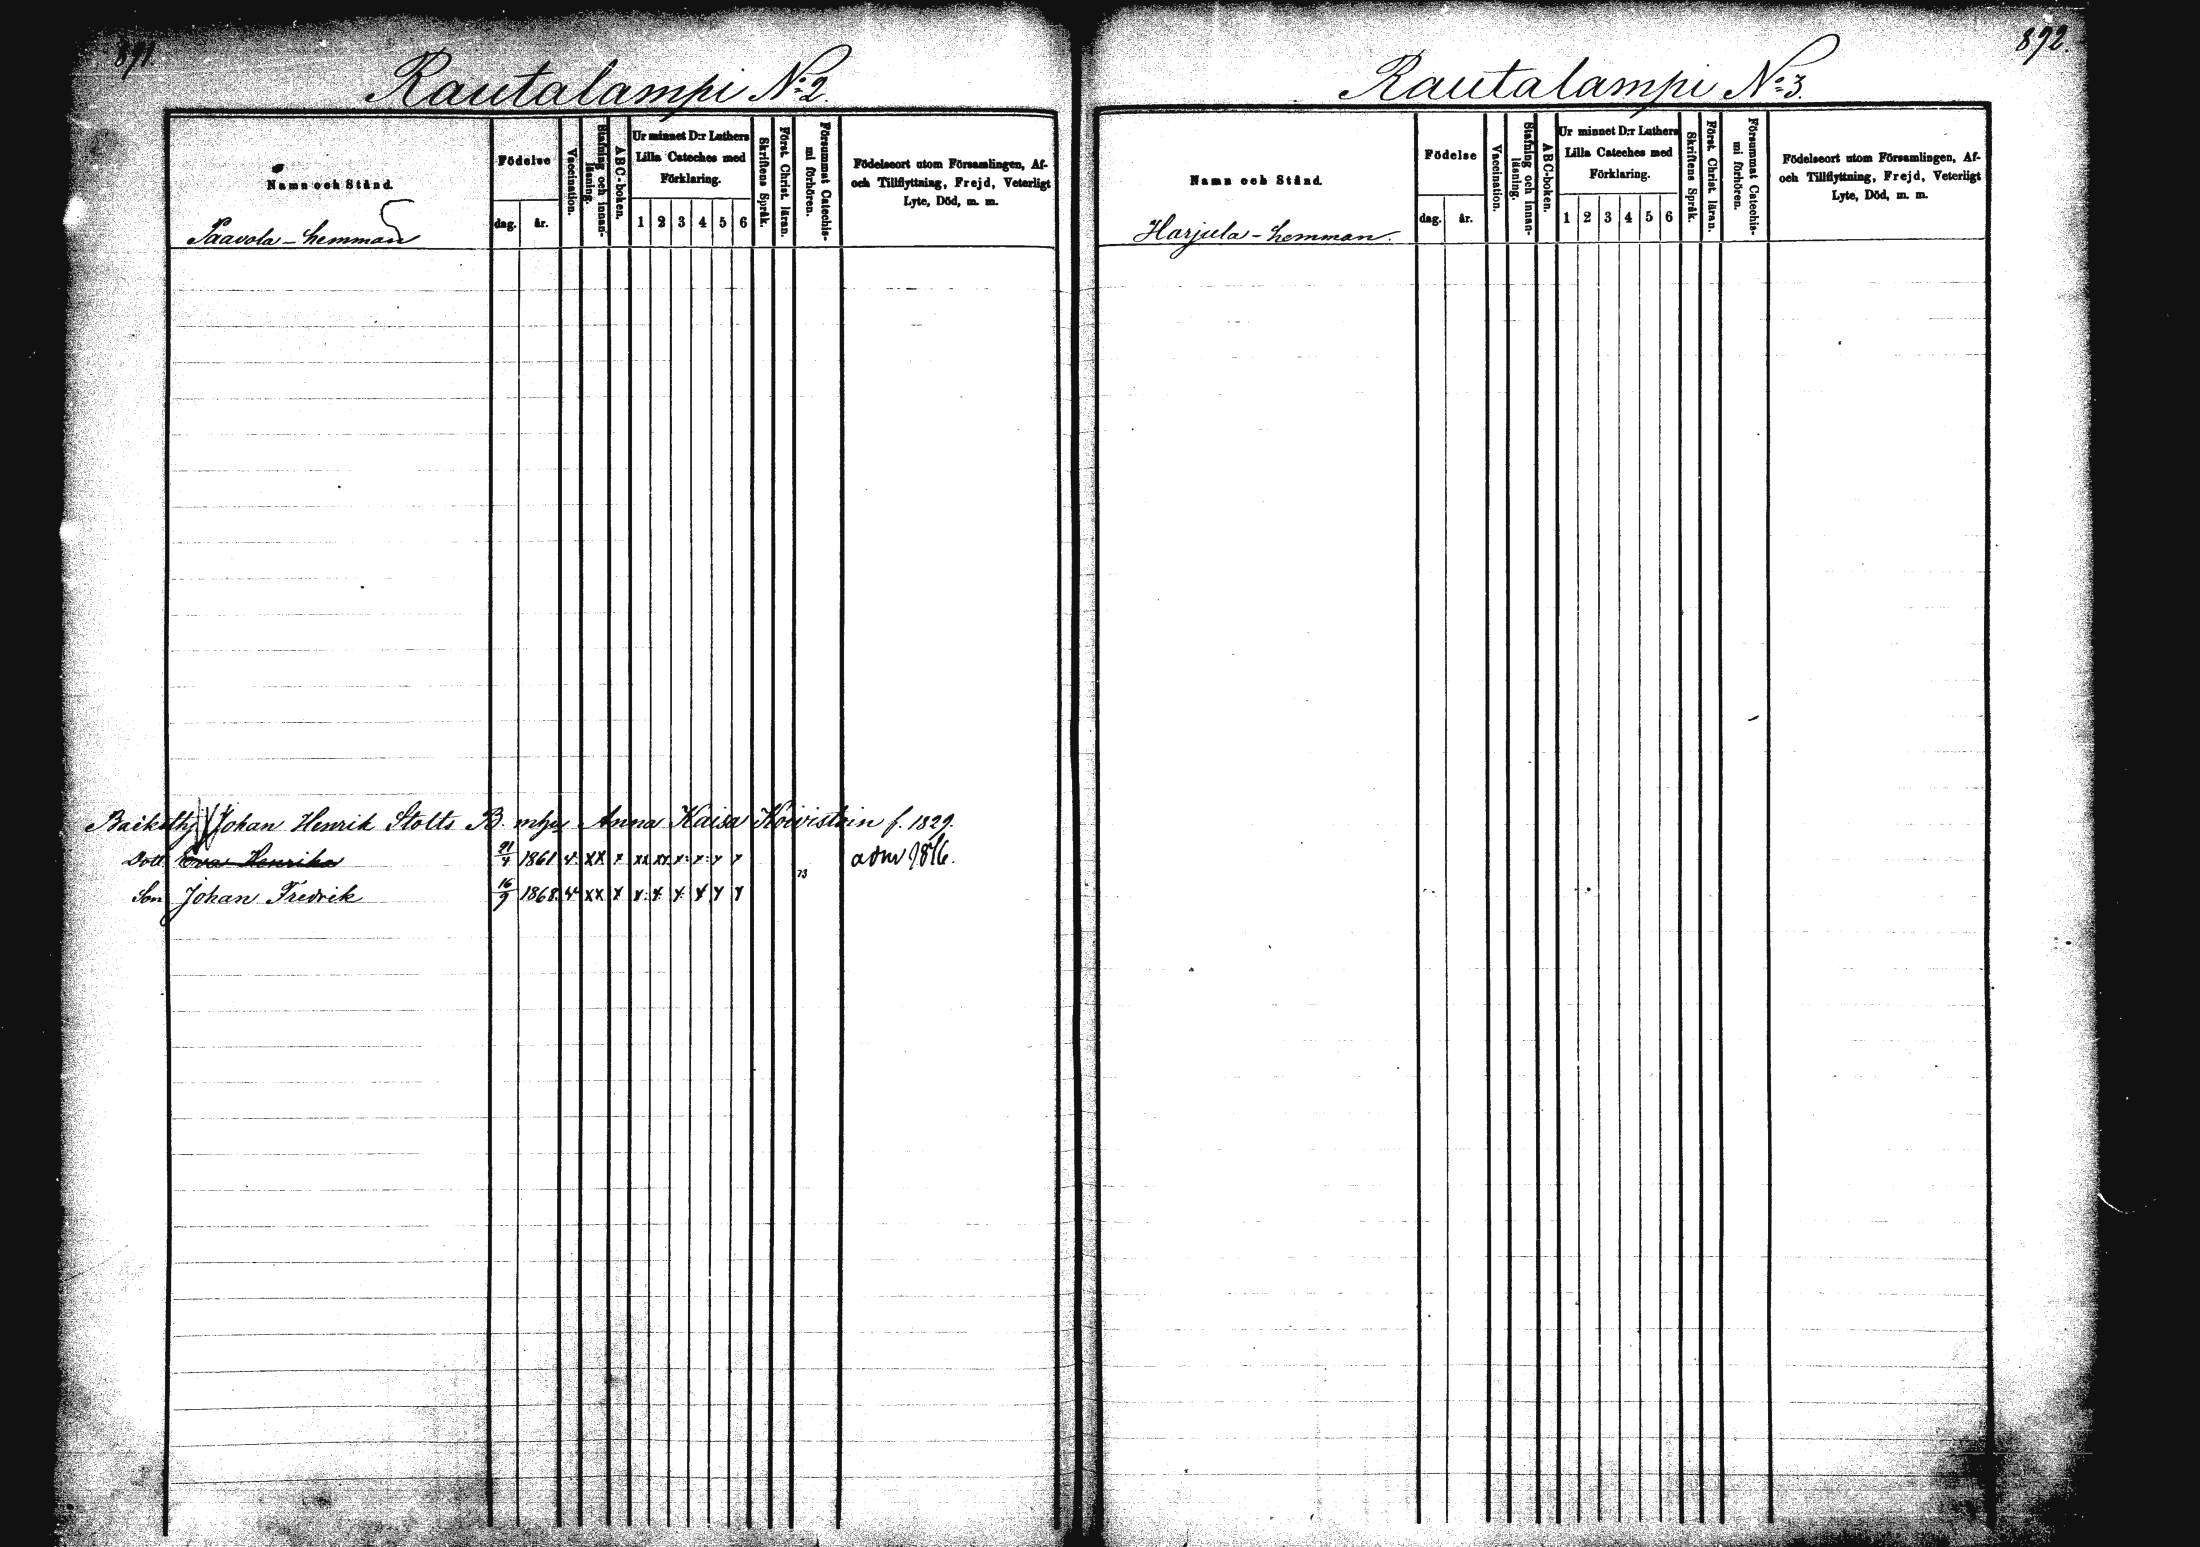 891.
Rautalampi No 2.
Namn och Stånd.
Födelse
dag. år.
Vaccination.
Stafning och innan-
läsning.
A B C-boken.
Ur minnet D:r Luthers
Lilla Cateches med
Förklaring.
1 2 3 4 5 6
Skriftens Språk.
Först. Christ. läran.
Försummat Catechis-
mi förhören.
Födelseort utom Församlingen, Af-
och Tillflyttning, Frejd, Veterligt
Lyte, Död, m. m.
Paavola-hemman
Johan Henrik Stolts B. Anna Kaisa f. 1829.
Dott. Eva Henrika 21/4 1861 v. xx x xx xx x x x x adm 1876.
73
Son Johan Fredrik 16/9 1868. v. xx x x x x x x x
892.
Rautalampi No 3.
Namn och Stånd.
Födelse
dag. år.
Vaccination.
Stafning och innan-
läsning.
A B C-boken.
Ur minnet D:r Luthers
Lilla Cateches med
Förklaring.
1 2 3 4 5 6
Skriftens Språk.
Först. Christ. läran.
Försummat Catechis-
mi förhören.
Födelseort utom Församlingen, Af-
och Tillflyttning, Frejd, Veterligt
Lyte, Död, m. m.
Harjula-hemman.